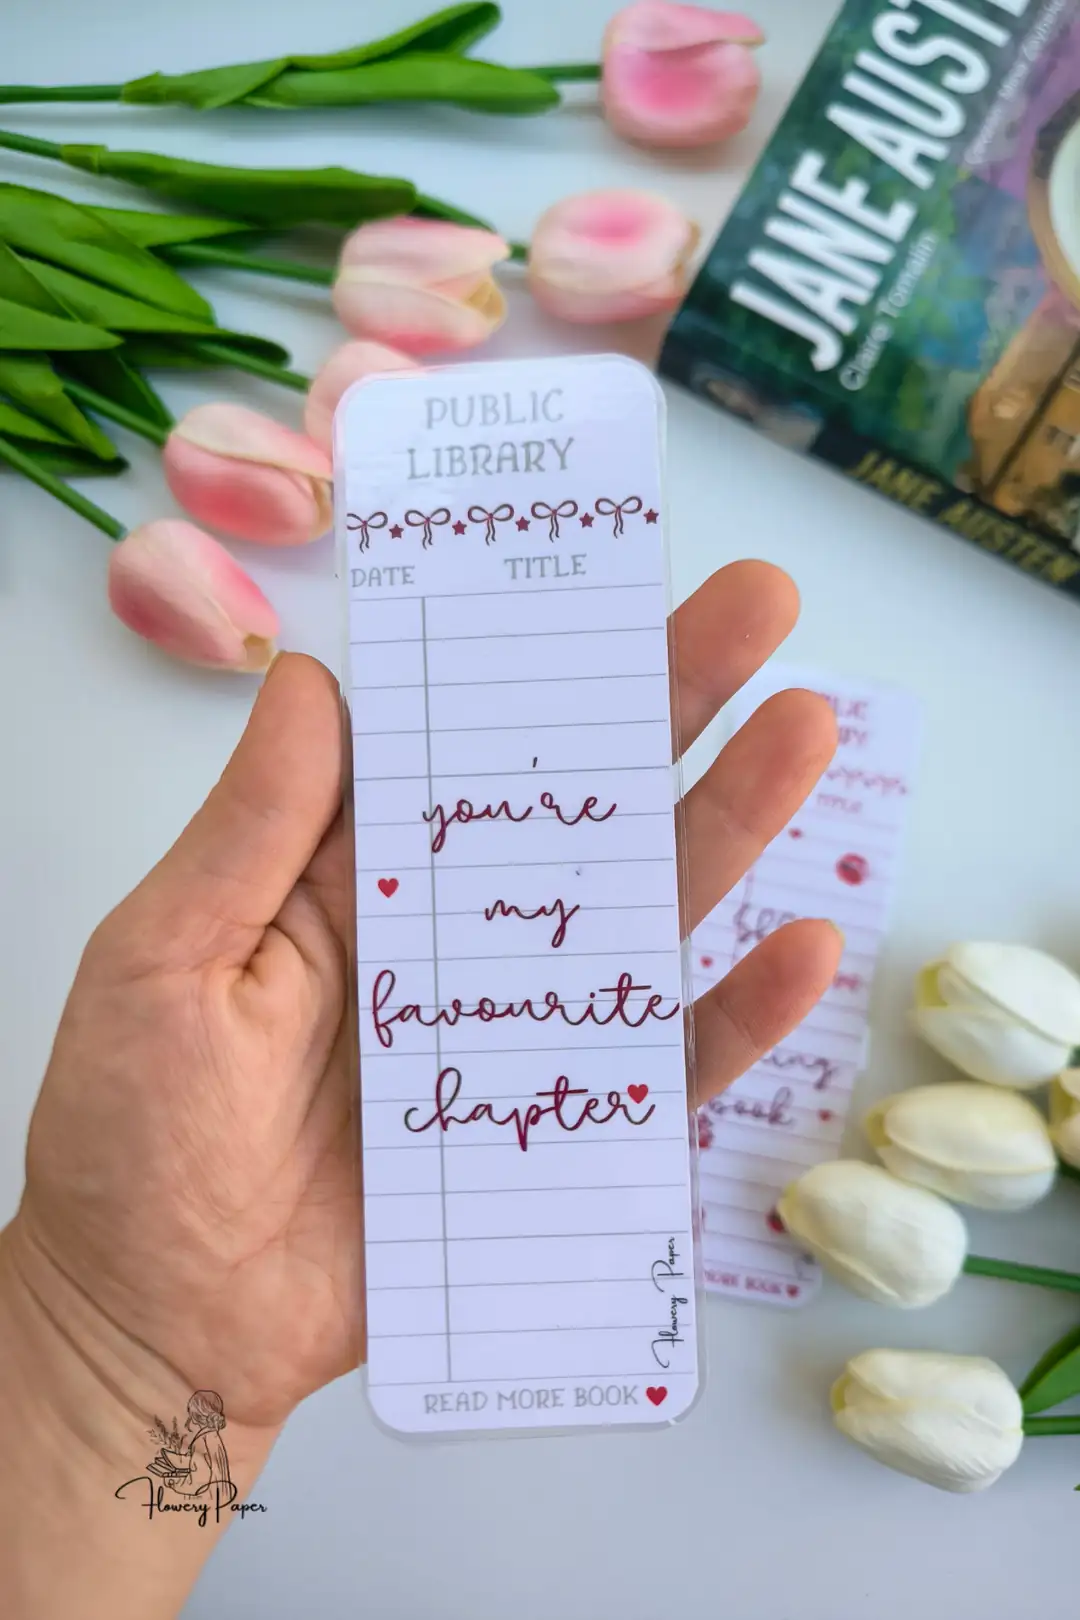 JANE AUSTE
Claire Tomalin
JANE AUSTEN
PUBLIC
LIBRARY
DATE TITLE
you're
my
favourite
chapter
Flowery Paper
READ MORE BOOK
book
MORE BOOK
Flowery Paper